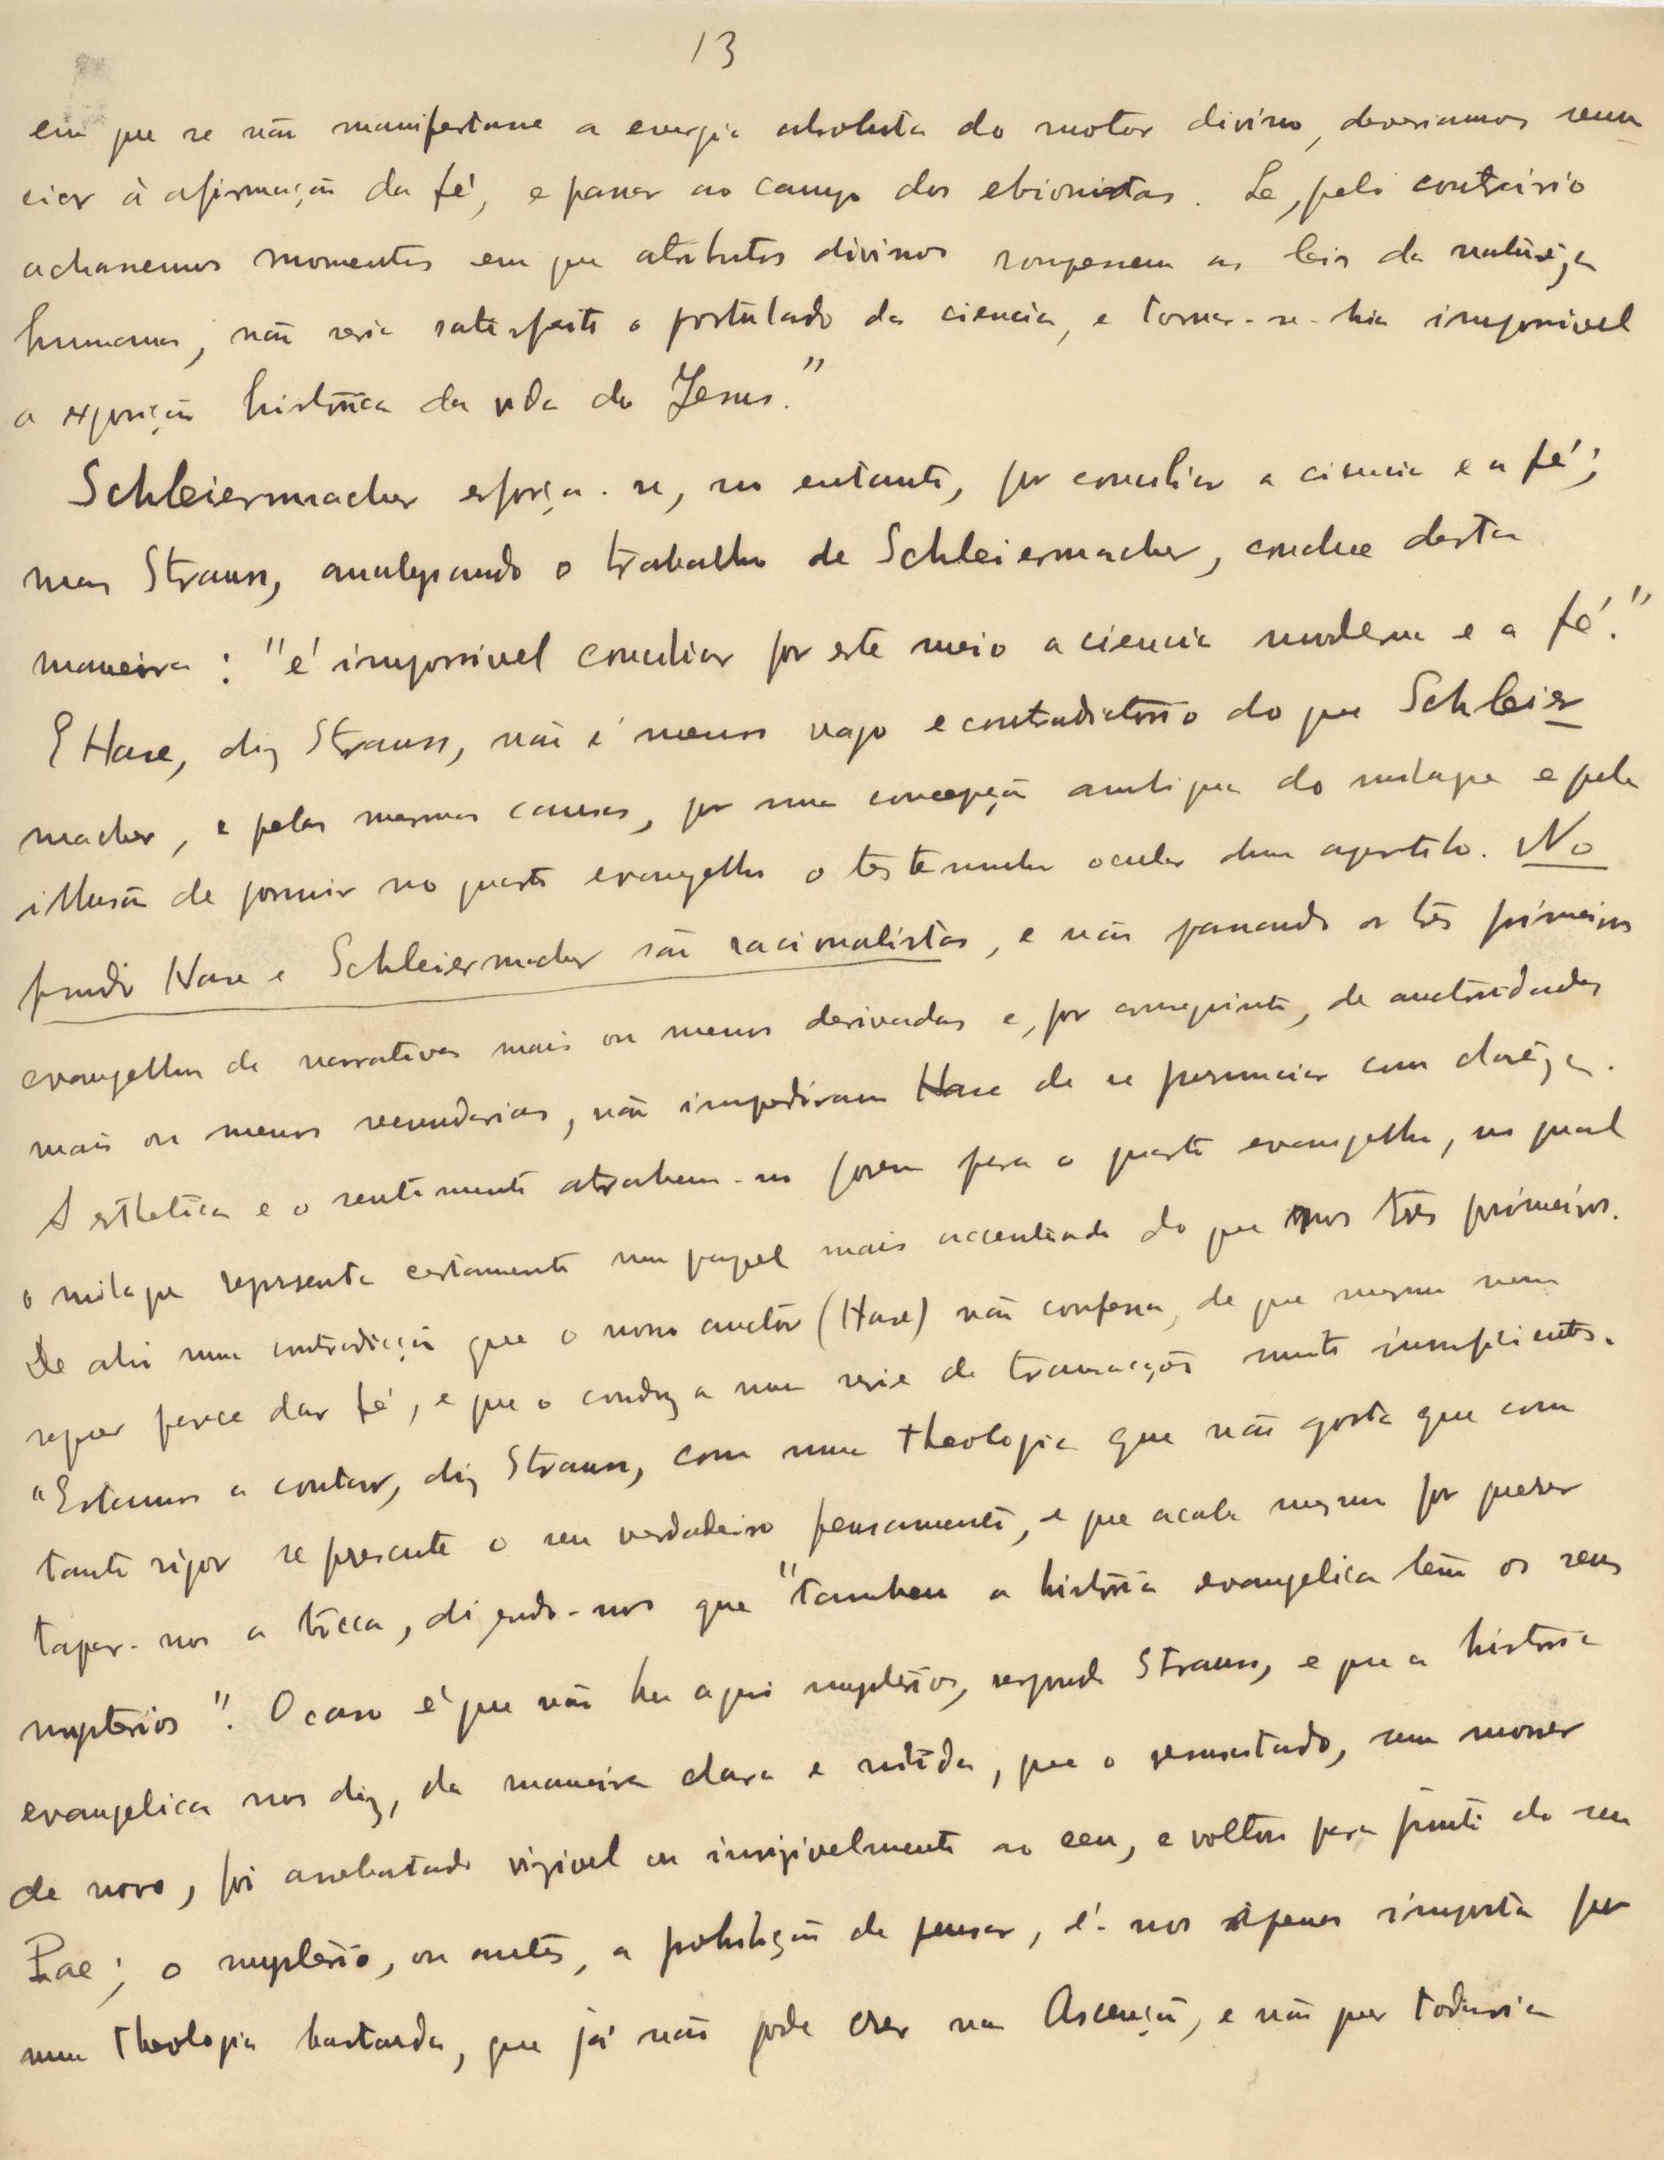 13
em que se não manifestasse a energia absoluta do motor divino, deveriamos renun
ciar á afirmação da fé, e passar ao campo dos ebionistas. Se, pelo contrário
achassemos momentos em que atributos divinos rompessem as leis da naturêza
humana, não seria satisfeito o postulado da ciencia, e tornar-se-hia impossivel
a exposição histórica da vida de Jesus."
Schleiermacher esforça-se, no entanto, por conciliar a ciencia e a fé;
mas Strauss, analysando o trabalho de Schleiermacher, conclue desta
maneira: "é impossivel conciliar por este meio a ciencia moderna e a fé."
E Hase, diz Strauss, não é menos vago e contradictorio do que Schleier
macher, e pelas mesmas causas, por uma concepção antiga do milagre e pela
illusão de possuir no quarto evangelho o testemunho ocular dum apostolo. No
fundo Hase e Schleiermacher são racionalistas, e não passando os três primeiros
evangelhos de narrativas mais ou menos derivadas e, por conseguinte, de auctoridades
mais ou menos secundarias, não impediram Hase de se pronunciar com clarêza.
A esthetica e o sentimento attrahem-no porem para o quarto evangelho, no qual
o milagre representa certamente um papel mais accentuado do que nos três primeiros.
De ahi uma contradicção que o nosso auctor (Hase) não confessa, de que mesmo nem
sequer parece dar fé, e que o conduz a uma serie de transacções muito insuficientes.
"Estamos a contar, diz Strauss, com uma theologia que não gosta que com
tanto rigor se prescute o seu verdadeiro pensamento, e que acaba mesmo por querer
tapar-nos a bocca, dizendo-nos que "tambem a história evangelica tem os seus
mysterios". O caso é que não ha aqui mysterios, responde Strauss, e que a historia
evangelica nos diz, de maneira clara e nitida, que o resuscitado, sem morrer
de novo, foi arrebatado vizivel ou invizivelmente ao ceu, e voltou para junto do seu
Pae; o mysterio, ou antes, a prohibição de pensar, é-nos apenas imposta por
uma theologia bastarda, que já não pode crer na Ascenção, e não quer todavia